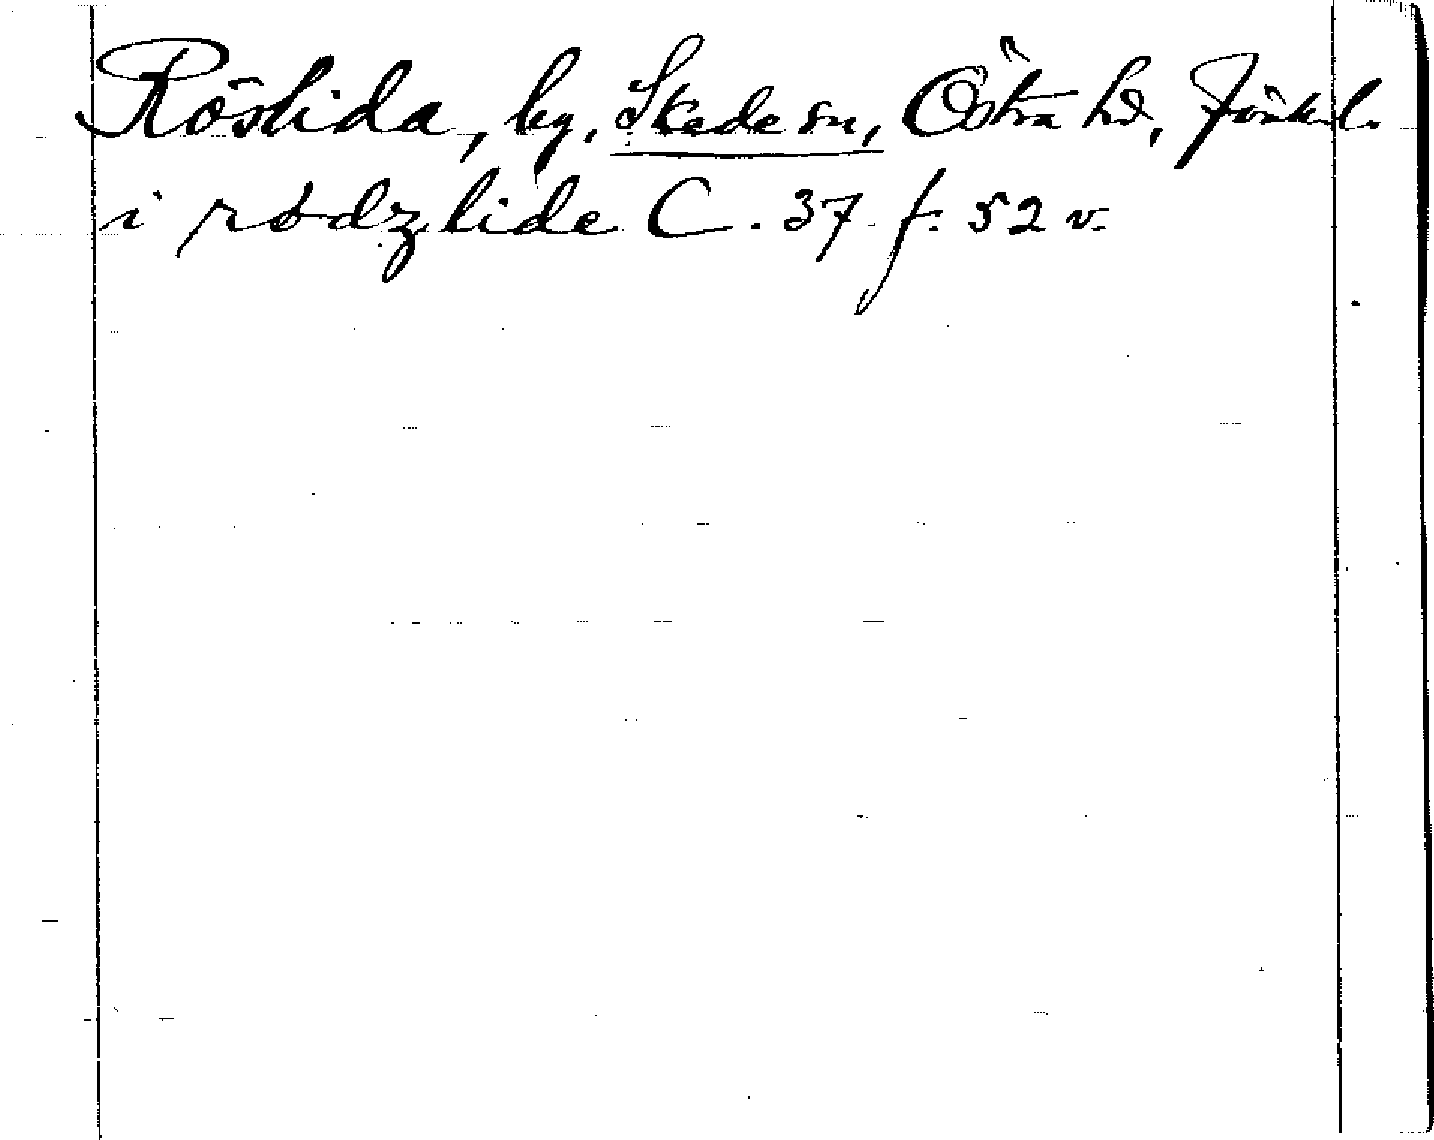 Röslida, by, Skede sn, Östra hd, Jönk.l.
i rødzlide C. 37 f. 52 v.